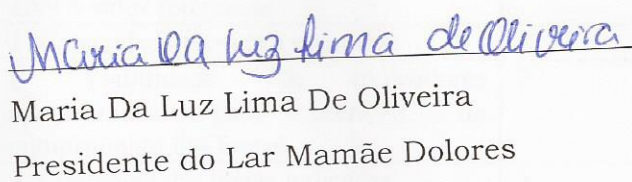 Maria Da Luz Lima de Oliveira
Maria Da Luz Lima De Oliveira
Presidente do Lar Mamãe Dolores